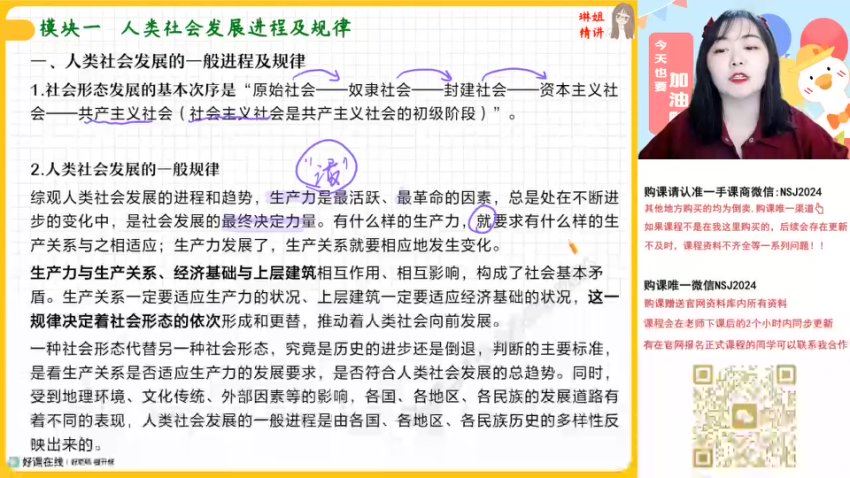 模块一 人类社会发展进程及规律
琳姐
精讲
一、人类社会发展的一般进程及规律
1.社会形态发展的基本次序是“原始社会——奴隶社会——封建社会——资本主义社
会——共产主义社会（社会主义社会是共产主义社会的初级阶段）”。
2.人类社会发展的一般规律
综观人类社会发展的进程和趋势，生产力是最活跃、最革命的因素，总是处在不断进
步的变化中，是社会发展的最终决定力量。有什么样的生产力，就要求有什么样的生
产关系与之相适应；生产力发展了，生产关系就要相应地发生变化。
生产力与生产关系、经济基础与上层建筑相互作用、相互影响，构成了社会基本矛
盾。生产关系一定要适应生产力的状况、上层建筑一定要适应经济基础的状况，这一
规律决定着社会形态的依次形成和更替，推动着人类社会向前发展。
一种社会形态代替另一种社会形态，究竟是历史的进步还是倒退，判断的主要标准，
是看生产关系是否适应生产力的发展要求，是否符合人类社会发展的总趋势。同时，
受到地理环境、文化传统、外部因素等的影响，各国、各地区、各民族的发展道路有
着不同的表现，人类社会发展的一般进程是由各国、各地区、各民族历史的多样性反
映出来的。
好课在线
今天也要
加油
购课请认准一手课商微信:NSJ2024
其他地方购买的均为倒卖,购课唯一渠道
如果课程不是在我这里购买的，后续会存在更新
不及时，课程资料不齐全等一系列问题！！
购课唯一微信NSJ2024
购课赠送官网资料库内所有资料
课程会在老师下课后的2个小时内同步更新
有在官网报名正式课程的同学可以联系我合作